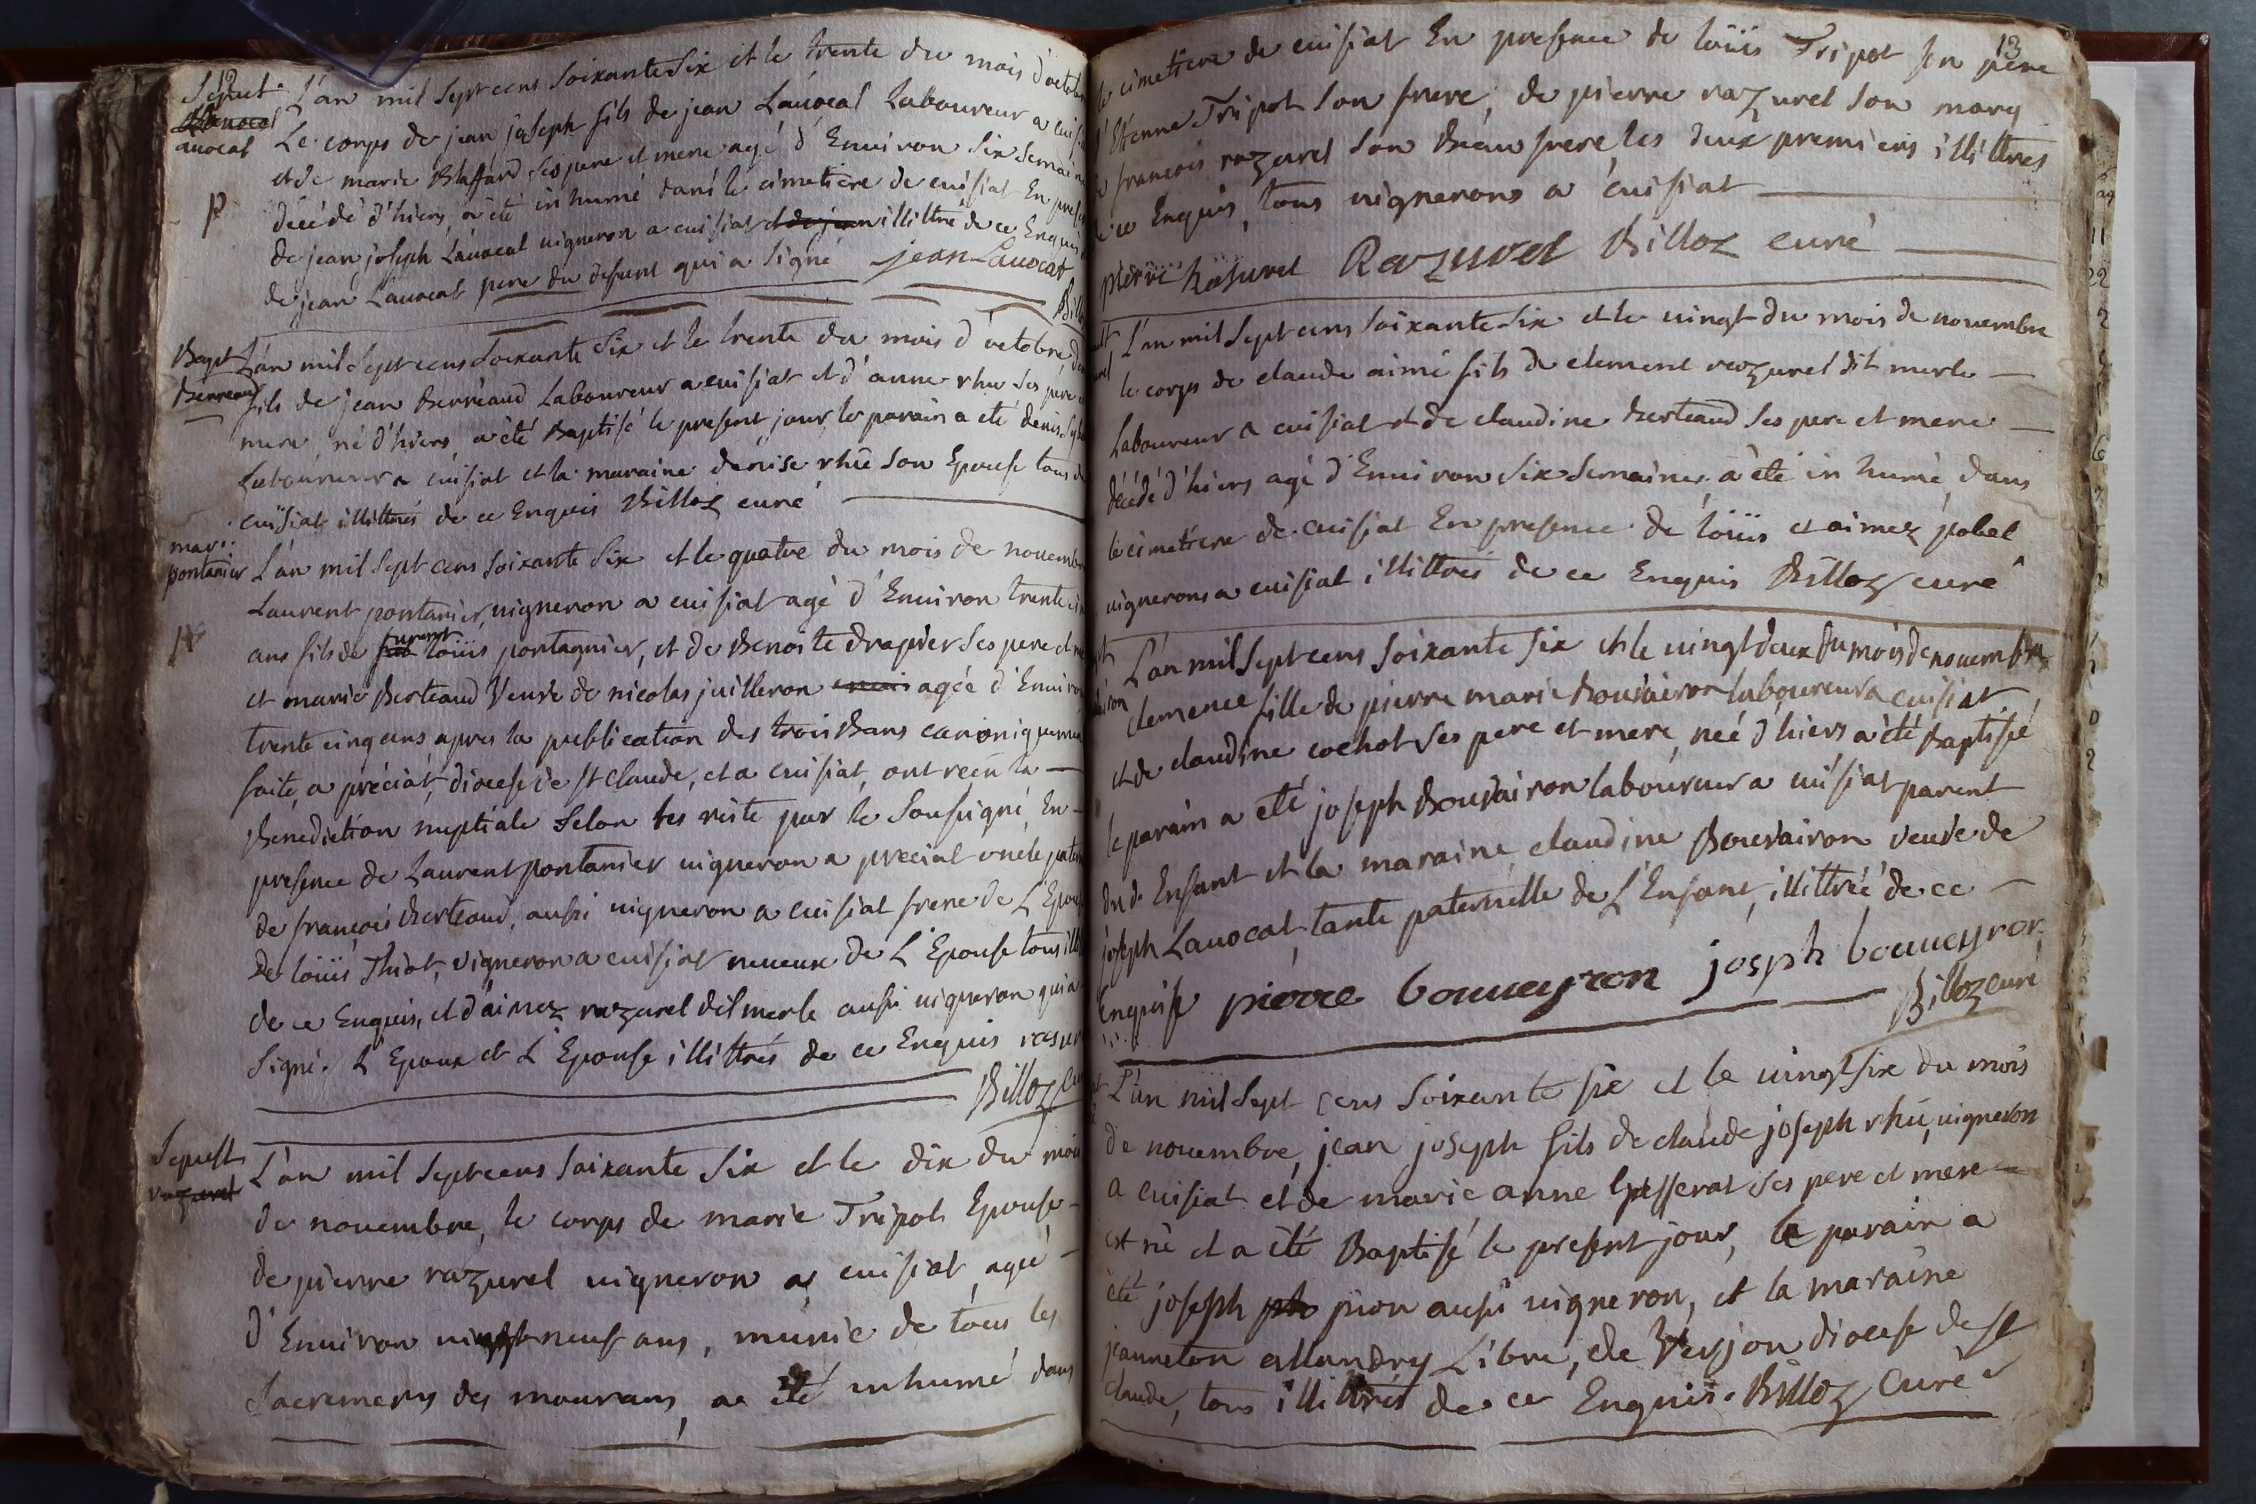 Sepult.
Lavocat
avocat
L'an mil sept cens soixante six et le trente du mois d'octobre
Le corps de jean joseph fils de jean Lavocat Laboureur a cuisiat
et de marie Blaffard ses pere et mere agé d'Environ six semaines
décédé d'hiers, a été inhumé dans le cimetiere de cuisiat En presence
de jean joseph Lavocat vigneron a cuisiat et de jean illittré de ce Enquis
de jean Lavocat pere du defunt qui a signé jean Lavocat
Bapt
Berreaud
L'an mil sept cens soixante six et le trente du mois d'octobre
fils de jean Berreaud Laboureur a cuisiat et d'anne rhu ses pere et
mere né d'hiers a été Baptisé le present jour, le parain a eté denis
Laboureur a cuisiat et la maraine denise rhu son Epouse tous de
cuisiat illittrés de ce Enquis Billoz curé
mari.
pontanier
L'an mil sept cens soixante six et le quatre du mois de novembre
Laurent pontanier, vigneron a cuisiat agé d'Environ trente
ans fils de furent loüis pontagnier, et de Benoite drapier ses pere et
et marie Berteaud Veuve de nicolas juilleron agée d'Environ
trente cinq ans apres la publication des trois Bans canoniquement
faite, a préciat, diocese de st claude, et a cuisiat, ont reçu la
Benediction nuptiale selon les rite par le soussigné, En
presence de Laurent pontanier vigneron a preciat oncle
de françois Berteaud, aussi vigneron a cuisiat frere de L'Epouse
De loüis Thiot, vigneron a cuisiat neveux de L'Epouse tous
de ce Enquis, et d'aimez razurel dit merle aussi vigneron qui a
signé. L'Epoux et L'Epouse illittrés de ce Enquis
Billoz
Sepult
razurel
L'an mil sept cens soixante six et le dix du mois
de novembre, le corps de marie Tripot Epouse
de pierre razurel vigneron a cuisiat, agée
d'Environ vingt neuf ans, munie de tous les
sacremens des mourans, a été inhumé dans
13
le cimetiere de cuisiat En presence de loüis Tripot son pere
d'Etienne Tripot son frere, de pierre razurel son mary
de françois razurel son Beau frere les deux premiers illittres
de ce Enquis, tous vignerons a cuisiat
pierre Rasurel Razurel Billoz curé
L'an mil sept cens soixante six et le vingt du mois de novembre
le corps de claude aimé fils de clement razurel dit merle
Laboureur a cuisiat et de claudine Berteaud ses pere et mere
décédé d'hiers agé d'Environ six semaines a été in humé dans
le cimetiere de cuisiat En presence de loüis et aimez pobel
vignerons a cuisiat illittrés de ce Enquis Billoz curé
L'an mil sept cens soixante six et le vingt deux du mois de novembre
clemence fille de pierre marie Bouvairon laboureur a cuisiat
et de claudine cochot ses pere et mere, née d'hiers a été Baptisé
le parain a eté joseph Bouvairon laboureur a cuisiat parent
du d. Enfant et la maraine claudine Bouvairon veuve de
joseph Lavocat, tante paternelle de L'Enfant, illittrée de ce
Enquise pierre bouueyron joseph bouueyron
Billoz curé
L'an mil sept cens soixante six et le vingt six du mois
de novembre, jean joseph fils de claude joseph rhu, vigneron
a cuisiat et de marie anne passerat ses pere et mere
est né et a été Baptisé le present jour, le parain a
été joseph pion aussi vigneron, et la maraine
jeanneton allandry Libre, de Verjon diocese de st
claude, tous illittrés de ce Enquis. Billoz Curé